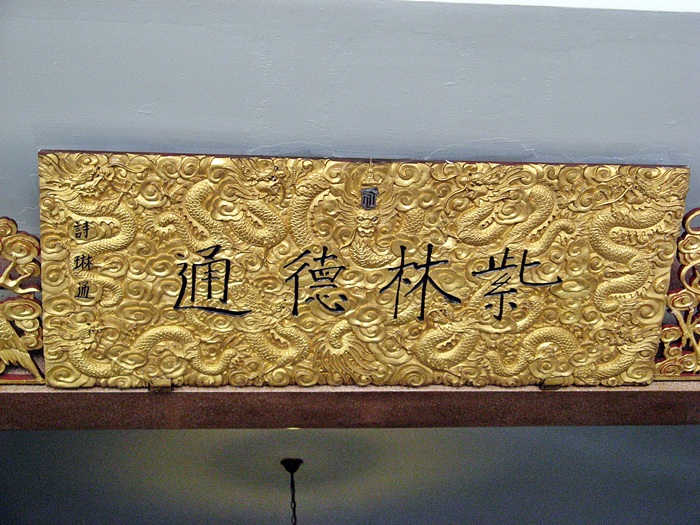 紫林德通
詩琳通